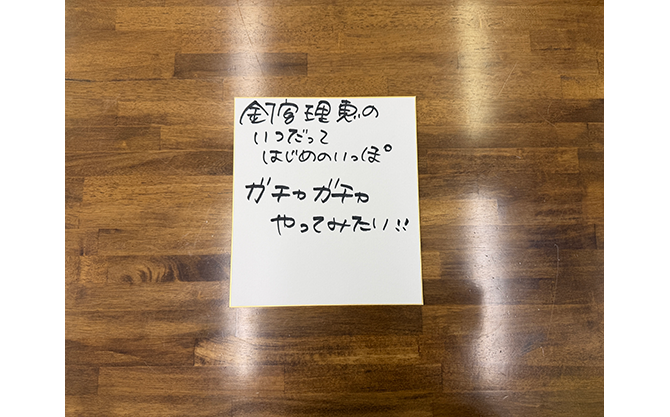 釘宮理恵の
いつだって
はじめのいっぽ
ガチャガチャ
やってみたい!!